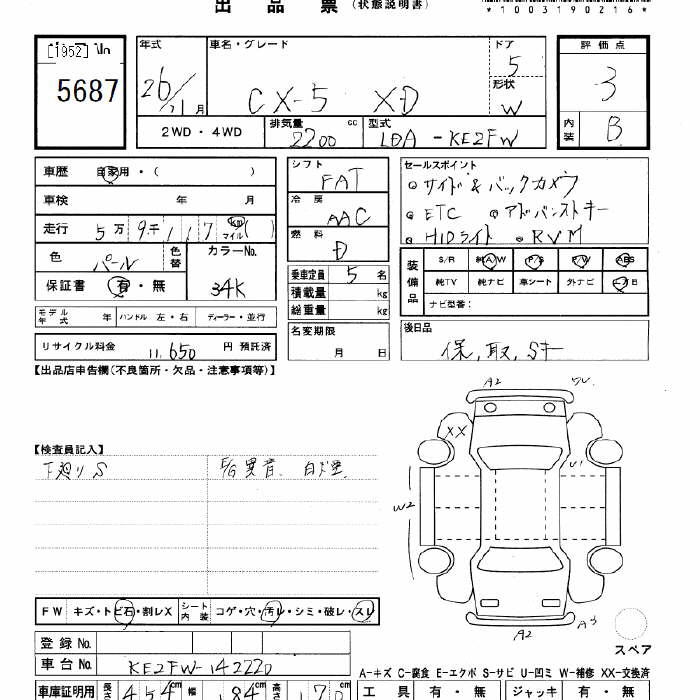 出 品 票 (状態説明書)
*1003190216*
[1952] No
5687
年式 車名・グレード ドア 評価点
26/ 月 CX-5 XD 5 3
形状 W
2WD・4WD 排気量 2200 cc 型式 LDA-KE2FW 内装 B
車歴 自家用・( )
車検 年 月
走行 5万 9千 117 km マイル ( )
色 パール 色替 カラーNo. 34K
保証書 有・無
モデル年式 年 ハンドル 左・右 ディーラー・並行
リサイクル料金 11,650 円 預託済
シフト FAT
冷房 AAC
燃料 D
乗車定員 5 名
積載量 kg
総重量 kg
名変期限 月 日
セールスポイント
サイド & バックカメラ
ETC アドバンストキー
HIDライト RVM
装備品 S/R 純A/W P/S P/W ABS
純TV 純ナビ 革シート 外ナビ エアB
ナビ型番:
後日品
保, 取, Sキー
【出品店申告欄(不良箇所・欠品・注意事項等)】
【検査員記入】
下廻り S 異音
A2
XX U1
W2
A2 A3
スペア
FW キズ・トビ石・割レX シート内装 コゲ・穴・汚レ・シミ・破レ・スレ
登録 No.
車台 No. KE2FW-142220
A−キズ C−腐食 E−エクボ S−サビ U−凹ミ W−補修 XX−交換済
車庫証明用 長さ 454 cm 幅 184 cm 高さ 170 cm
工具 有・無 ジャッキ 有・無